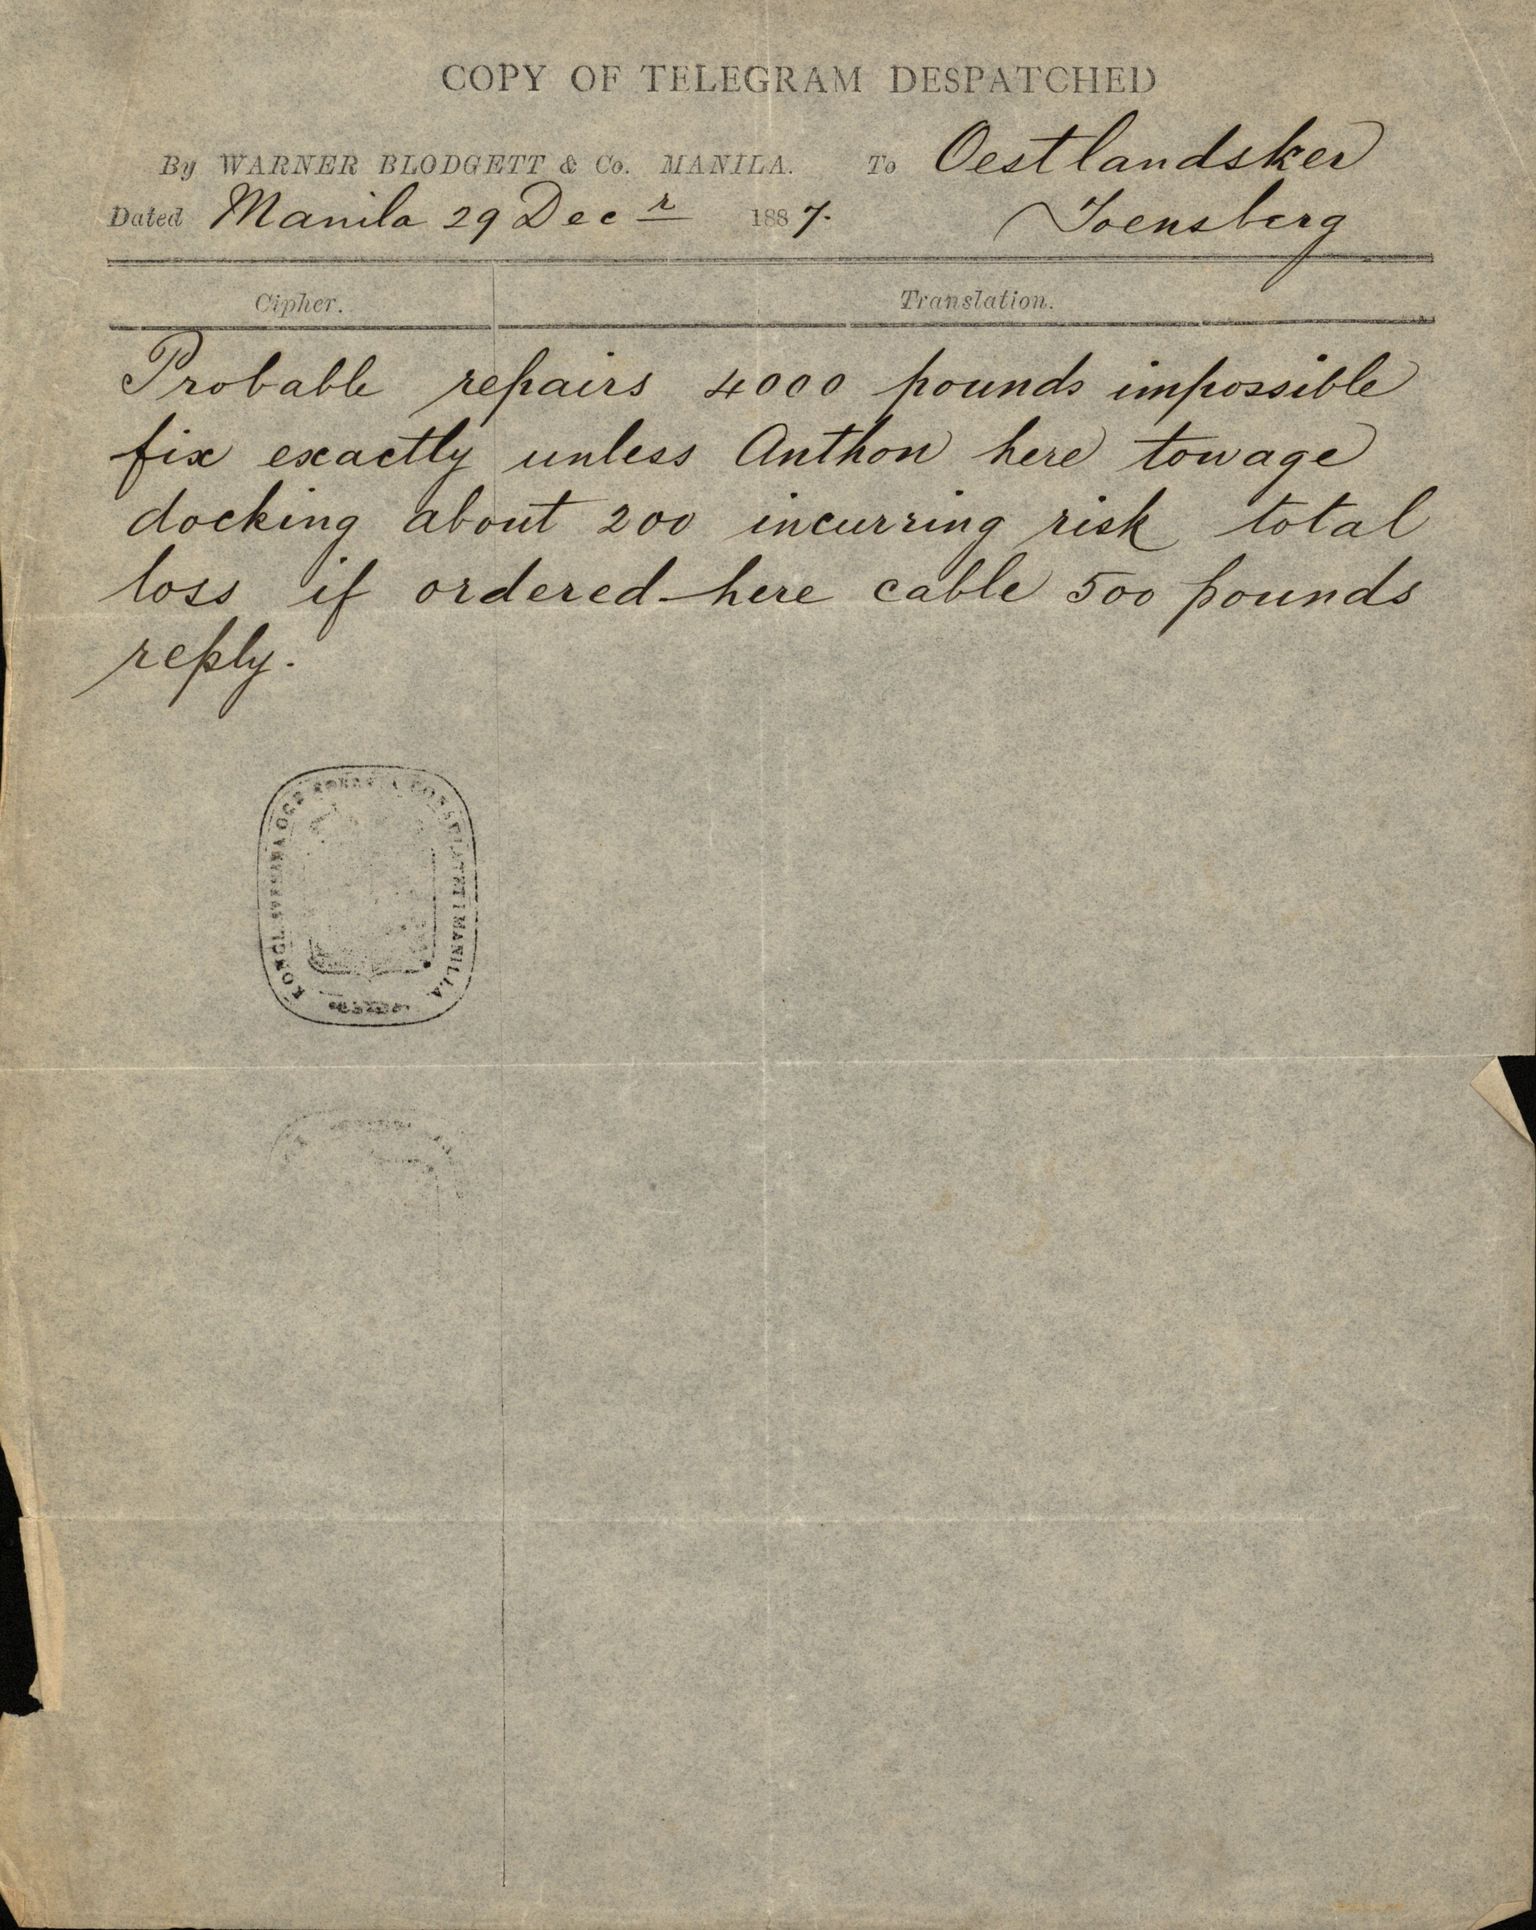 COPY OF TELEGRAM DESPATCHED
By WARNER BLODGETT & Co. MANILA. To Oestlandsker
Dated Manila 29 Decr 1887. Toensberg
Cipher. Translation.
Probable repairs 4000 pounds impossible
fix exactly unless Anthon here towage
docking about 200 incurring risk total
loss if ordered here cable 500 pounds
reply.
KONGL. SVENSKA OCH NORSKA CONSULATET I MANILLA